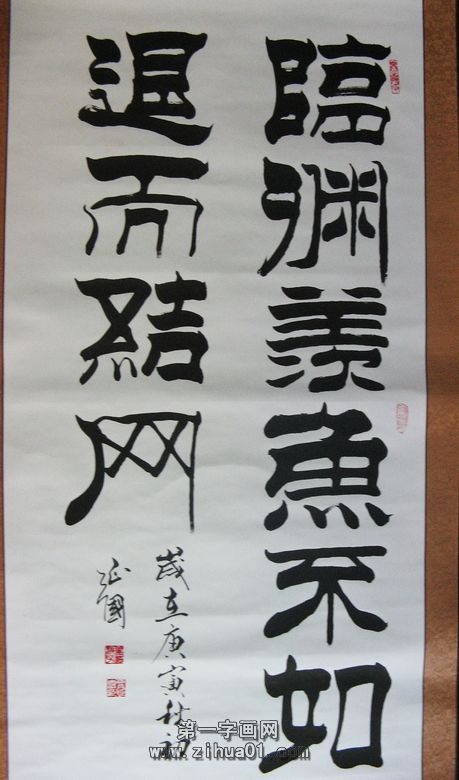 臨渊羡魚不如
退而結网
歲在庚寅秋月
延國
第一字画网
www.zihua01.com